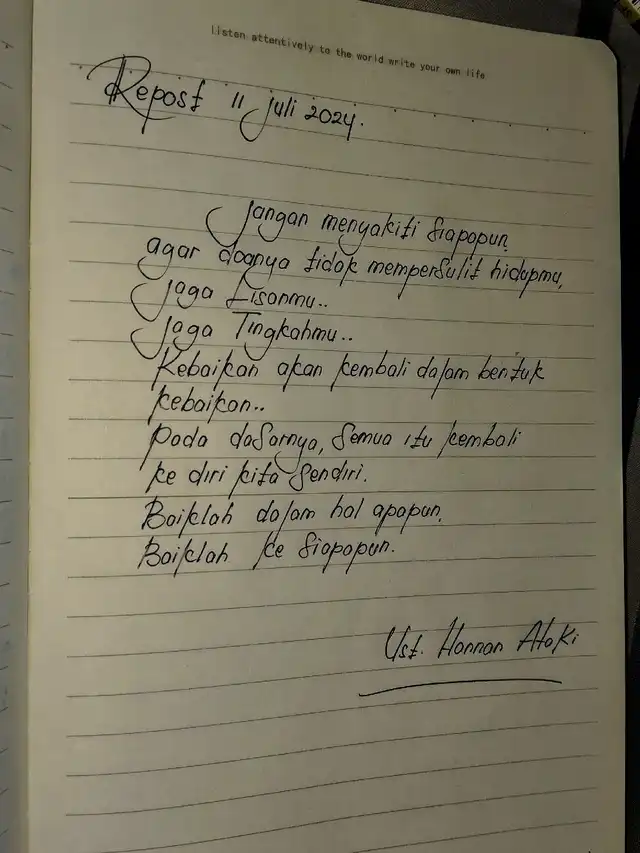 listen attentively to the world write your own life
Repost 11 juli 2024.
Jangan menyakiti siapapun
agar doanya tidak mempersulit hidupmu,
Jaga Lisanmu..
Jaga Tingkahmu..
Kebaikan akan kembali dalam bentuk
kebaikan..
pada dasarnya, semua itu kembali
ke diri kita sendiri.
Baiklah dalam hal apapun,
Baiklah ke siapapun.
Ust. Hannan Ataki